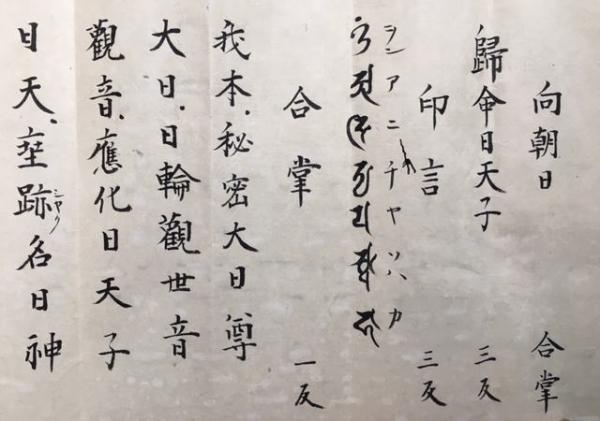 向朝日 合掌
歸命日天子 三反
印言 三反
ヲンアニチヤソハカ
合掌 一反
我本、秘密大日尊
大日、日輪觀世音
觀音、應化日天子
日天、埀跡名日神